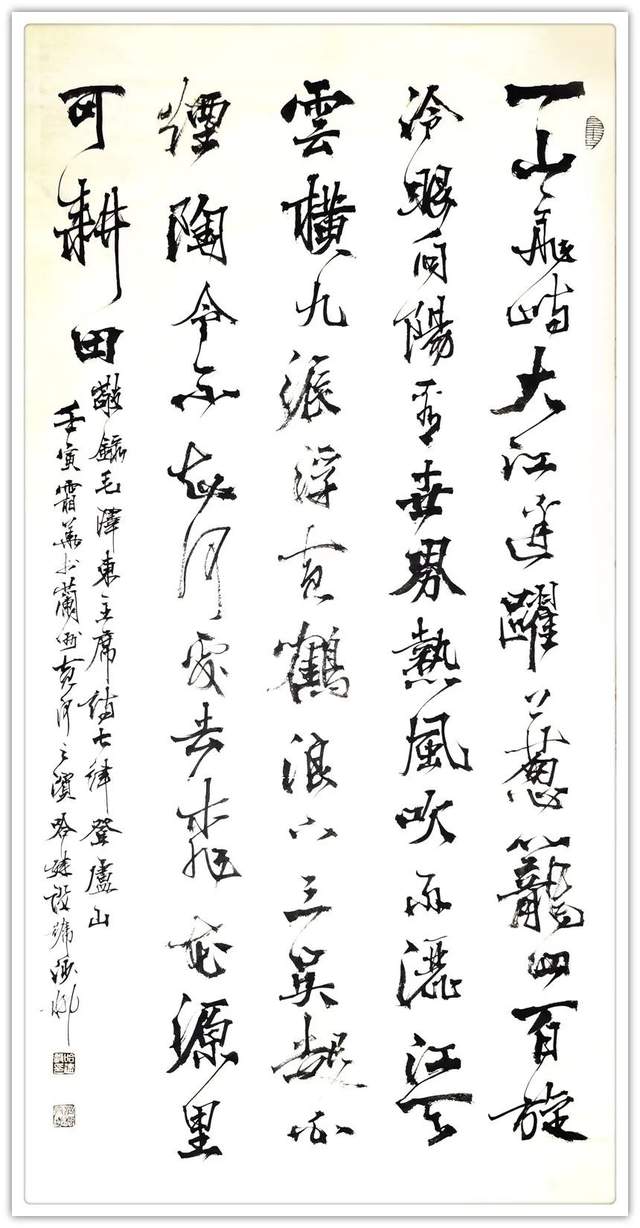 一山飛峙大江邊躍上葱籠四百旋
冷眼向陽看世界熱風吹雨灑江天
雲橫九派浮黄鶴浪下三吳起白
煙陶令不知何處去桃花源里
可耕田
敬錄毛澤東主席詩七律登廬山
壬寅霜華於蘭州黄河之濱哈建設號